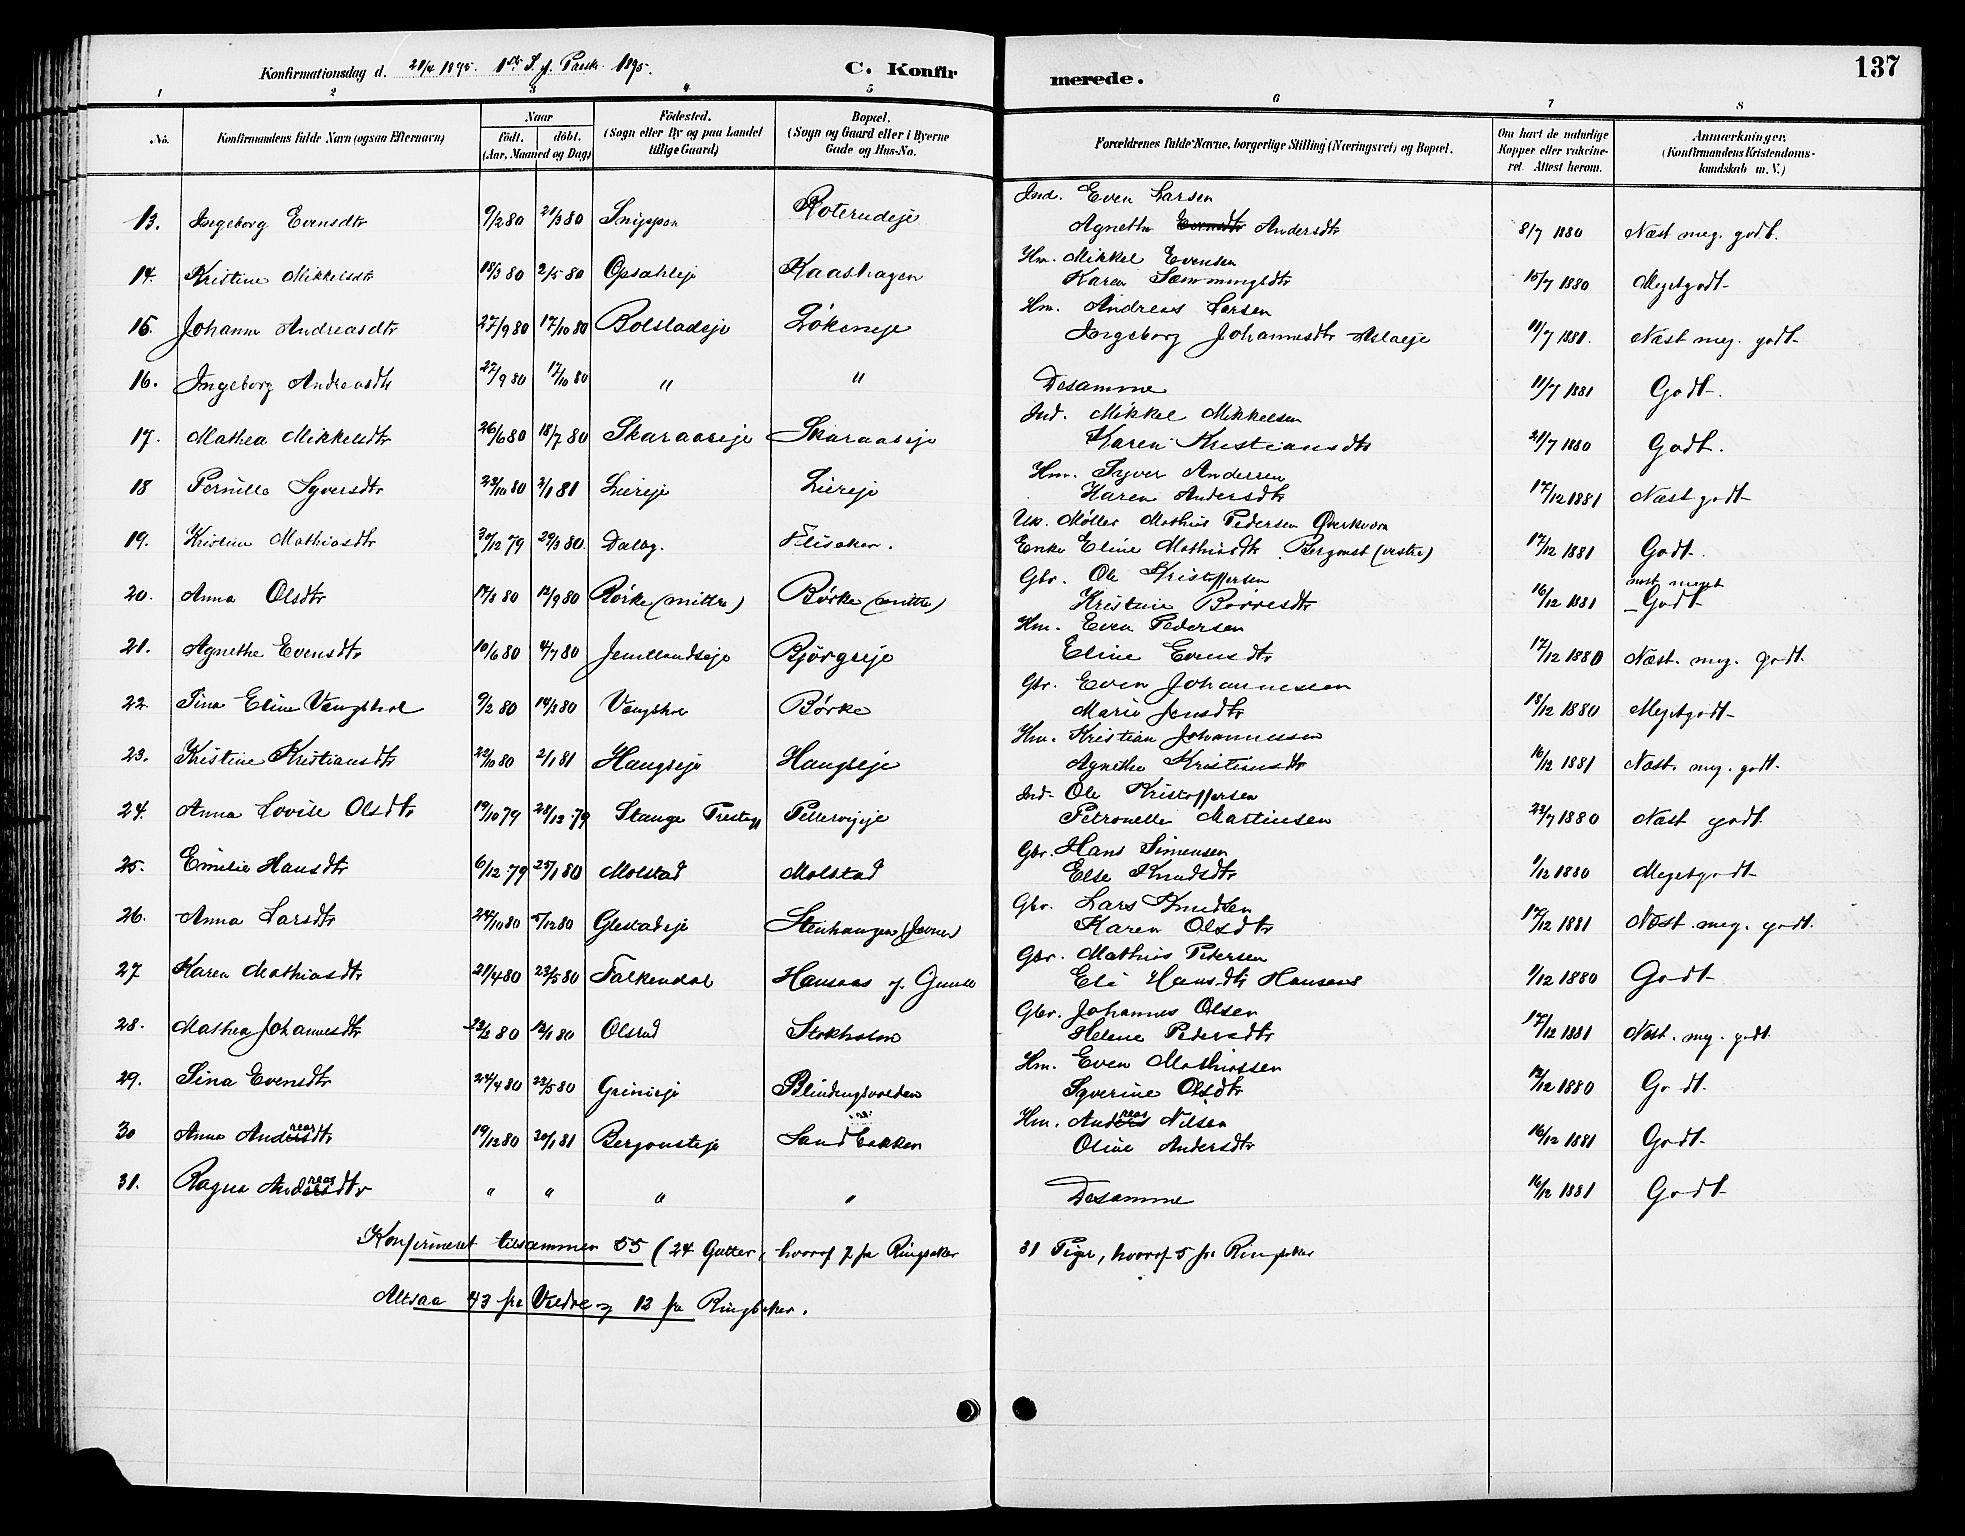 Konfirmationsdag d. 21/4 1895. 1ste S. f. Paask. 1895.
C. Konfirmerede.
137
1 2 3 4 5 6 7 8
No. Konfirmandens fulde Navn (ogsaa Efternavn) Naar födt. döbt. (Aar, Maaned og Dag) Födested. (Sogn eller By og paa Landet tillige Gaard) Bopæl. (Sogn og Gaard eller i Byerne Gade og Hus-No. Forældrenes fulde Navne, borgerlige Stilling (Næringsvei) og Bopæl. Om havt de naturlige Kopper eller vakcineret. Attest herom. Anmærkninger, (Konfirmandens Kristendomskundskab m. V.)
13. Ingeborg Evensdtr 9/2 80 21/3 80 Snippen Roterudeje Ind. Even Larsen
Agnethe Evensdtr Andersdtr 8/7 1880 Næst meg. godt.
14. Kristine Mikkelsdtr 18/3 80 2/5 80 Opsahleje Kaashagen Hm. Mikkel Evensen
Karen Sæmmingsdtr 15/7 1880 Megetgodt
15. Johanne Andreasdtr 27/9 80 17/10 80 Bolstadeje Løkeneje Hm. Andreas Larsen
Ingeborg Johannesdtr Aslaeje 11/7 1881. Næst meg. godt
16. Ingeborg Andreasdtr 27/9 80 17/10 80 " " Desamme 11/7 1881 Godt.
17. Mathea Mikkelsdtr 26/6 80 18/7 80 Skaraaseje Skaraaseje Ind. Mikkel Mikkelsen
Karen Kristiansdtr 21/7 1880 Godt.
18 Pernille Syversdtr 23/10 80 2/1 81 Liereje Liereje Hm. Syver Andersen
Karen Andersdtr 17/12 1881 Næst godt
19. Kristine Mathiasdtr 30/12 79 29/3 80. Dalby. Flisaker. Uk. Møller Mathias Pedersen Qverkværn
Enke Eline Mathiasdtr Bergenst (vestre) 17/12 1881 Godt.
20. Anna Olsdtr 17/8 80 12/9 80 Børke (mittre) Børke (mittre) Gbr. Ole Kristoffersen
Kristine Børresdtr 16/12 1881 næst meget Godt
21. Agnethe Evensdtr 10/6 80 4/7 80 Jemtlandseje Bjørgseje Hm. Even Pedersen
Eline Evensdtr 17/12 1880 Næst. meg. godt.
22. Tina Eline Vængshol 9/2 80 14/3 80 Vængshol Børke Gbr. Even Johannessen
Marie Jensdtr 13/12 1880 Megetgodt
23. Kristine Kristiansdtr 22/10 80 2/1 81 Haugseje Haugseje Hm. Kristian Johannessen
Agnethe Kristiansdtr 16/12 1881 Næst. meg. godt.
24. Anna Lovise Olsdtr 19/10 79 28/12 79 Stange Prestegj Pellervijeje Ind. Ole Kristoffersen
Petronelle Martinsen 23/7 1880 Næst godt.
25. Emilie Hansdtr 6/12 79 25/1 80 Molstad Molstad Gbr. Hans Simensen
Else Knudsdtr 1/12 1880 Megetgodt
26. Anna Larsdtr 24/10 80 5/12 80 Glestadeje Stenhangen (Jevne) Gbr. Lars Knudsen
Karen Olsdtr 17/12 1881 Næst. meg. godt.
27 Karen Mathiasdtr 21/4 80 23/5 80 Falkendal Hansaas Gbr. Mathias Pedersen
Eli Hansdtr Hansaas 1/12 1880 Godt
28. Mathea Johannesdtr 22/2 80 80 Olsrud Stokholm Gbr. Johannes Olsen
Helene Pedersdtr 17/12 1881 Næst. meg. godt.
29. Tina Evensdtr 24/4 80 23/5 80 Grinieje Blindingsvolden Hm. Even Mathiassen
Syverine Olsdtr 13/12 1880 Godt.
30 Anna Andersdtr reas 19/12 80 20/1 81 Bergensteje Sandbakken Hm. Anders reas Nilsen
Oline Andersdtr 16/12 1881 Godt
31. Ragna Andersdtr reas " " " " Desamme 16/12 1881 Godt
Konfirmeret tilsammen 55 (24 Gutter, hvoraf 7 fra Ringsaker 31 Piger, hvoraf 5 fra Ringsaker
Altsaa 43 fra Vældre og 12 fra Ringsaker.